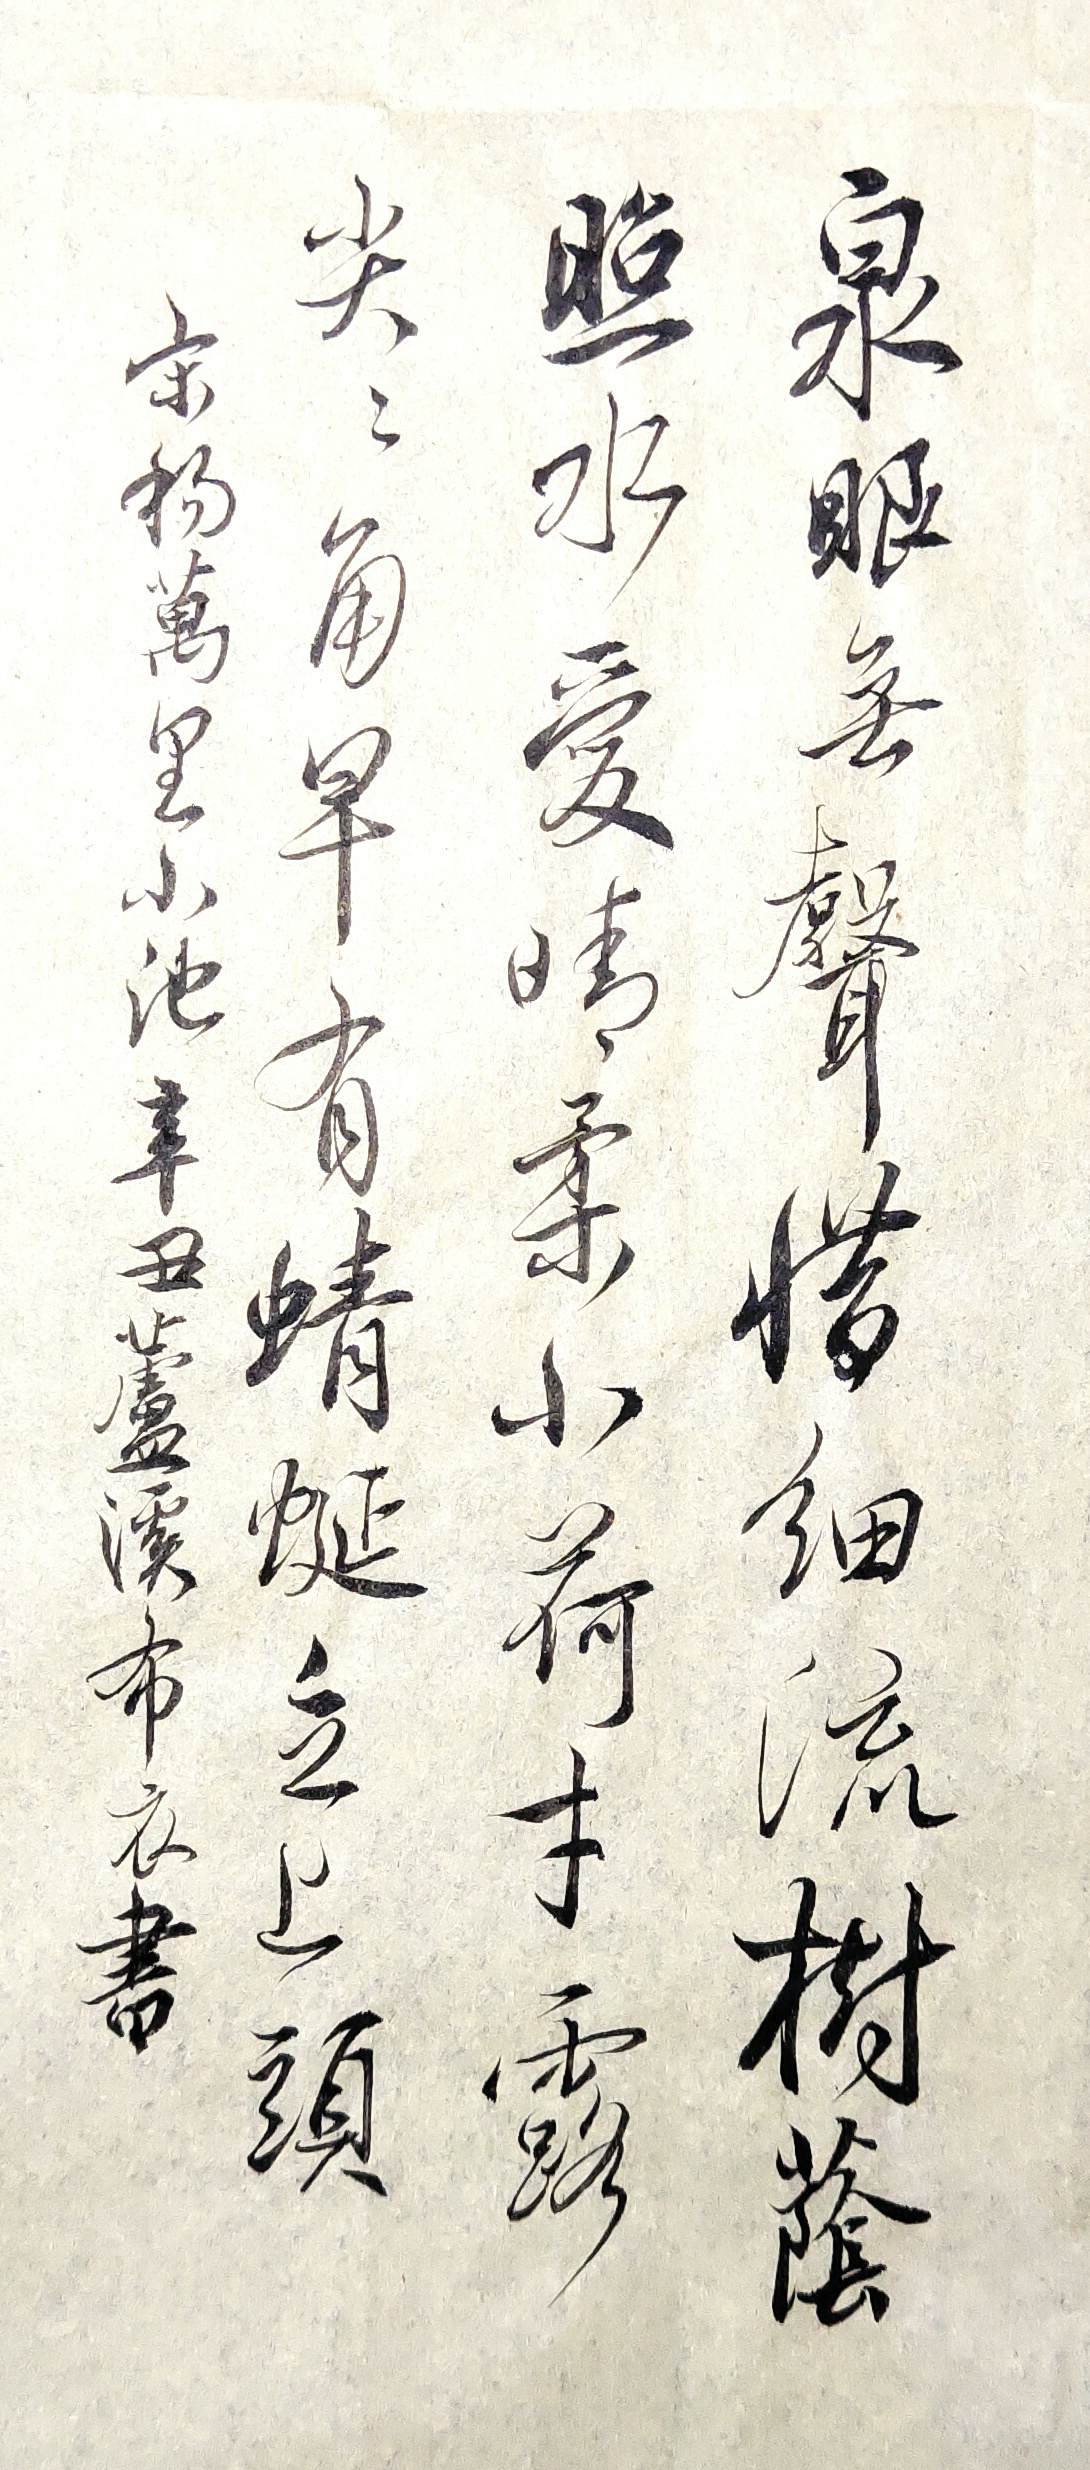 泉眼無聲惜細流樹蔭
照水愛晴柔小荷才露
尖〻角早有蜻蜓立上頭
宋楊萬里小池辛丑蘆溪布衣書